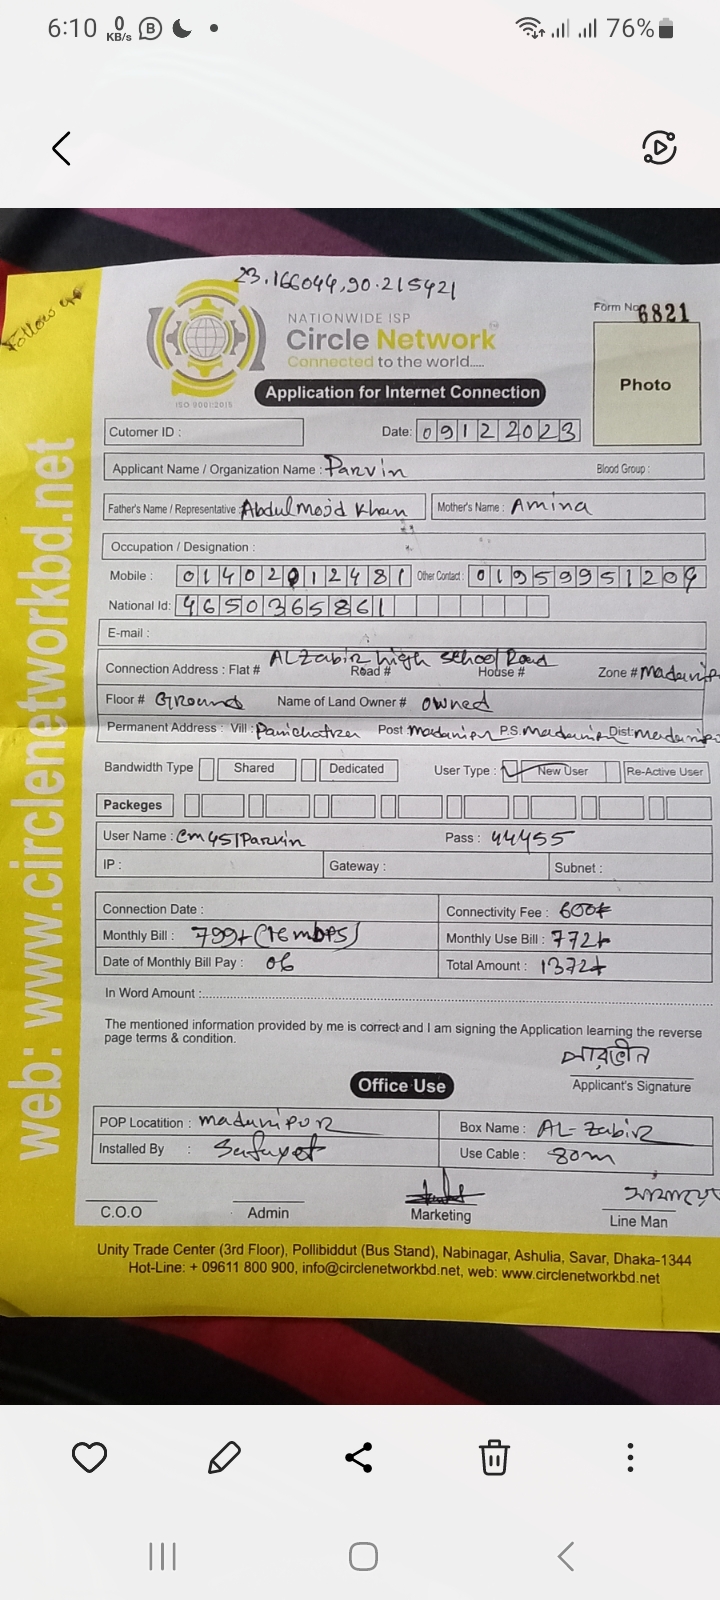 6:10 0 KB/s B 76%
23.166044,90.215421
Follow up
NATIONWIDE ISP
Circle Network
Connected to the world.....
ISO 9001:2015
Form No 6821
Photo
Application for Internet Connection
Cutomer ID :
Date: 09122023
Applicant Name / Organization Name : Parvin Blood Group :
Father's Name / Representative Abdul Mojid Khan Mother's Name : Amina
Occupation / Designation :
Mobile : 01402012481 Other Contact : 01959951209
National Id: 4650365861
E-mail :
Connection Address : Flat # Road # House # Zone #
AL Zabir high School Road
Floor # Ground Name of Land Owner # owned
Permanent Address : Vill : Post P.S. Dist:
Bandwidth Type Shared Dedicated User Type : New User Re-Active User
Packeges
User Name : Cm451Parvin Pass : 44455
IP : Gateway : Subnet :
Connection Date : Connectivity Fee : 600৳
Monthly Bill : 799৳ (16 mbps) Monthly Use Bill : 772৳
Date of Monthly Bill Pay : 06 Total Amount : 1372৳
In Word Amount :
The mentioned information provided by me is correct and I am signing the Application learning the reverse
page terms & condition.
পারভীন
Applicant's Signature
Office Use
POP Locatition : madaripur Box Name : AL-Zabir
Installed By : Safayet Use Cable : 80m
C.O.O Admin Marketing Line Man
Unity Trade Center (3rd Floor), Pollibiddut (Bus Stand), Nabinagar, Ashulia, Savar, Dhaka-1344
Hot-Line: + 09611 800 900, info@circlenetworkbd.net, web: www.circlenetworkbd.net
web: www.circlenetworkbd.net